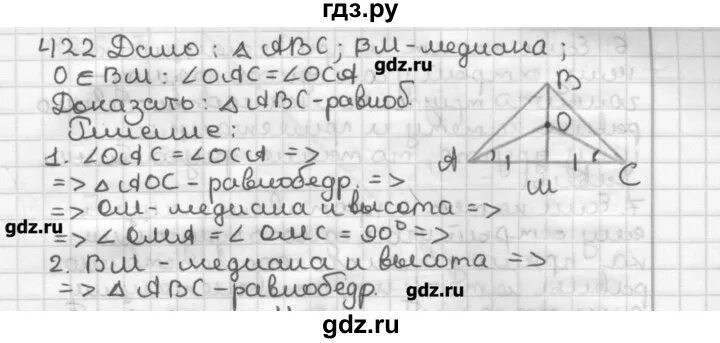 гдз.ру
422 Дано: △ ABC; BM-медиана;
O ∈ BM: ∠OAC=∠OCA
gdz.ru
Доказать: △ ABC-равноб.
Решение:
1. ∠OAC=∠OCA =>
=> △ AOC - равнобедр. =>
=> OM- медиана и высота =>
gdz.ru
=> ∠ OMA = ∠ OMC = 90° =>
2. BM - медиана и высота =>
=> △ ABC-равнобедр.
B
O
A
M
C
gdz.ru
gdz.ru